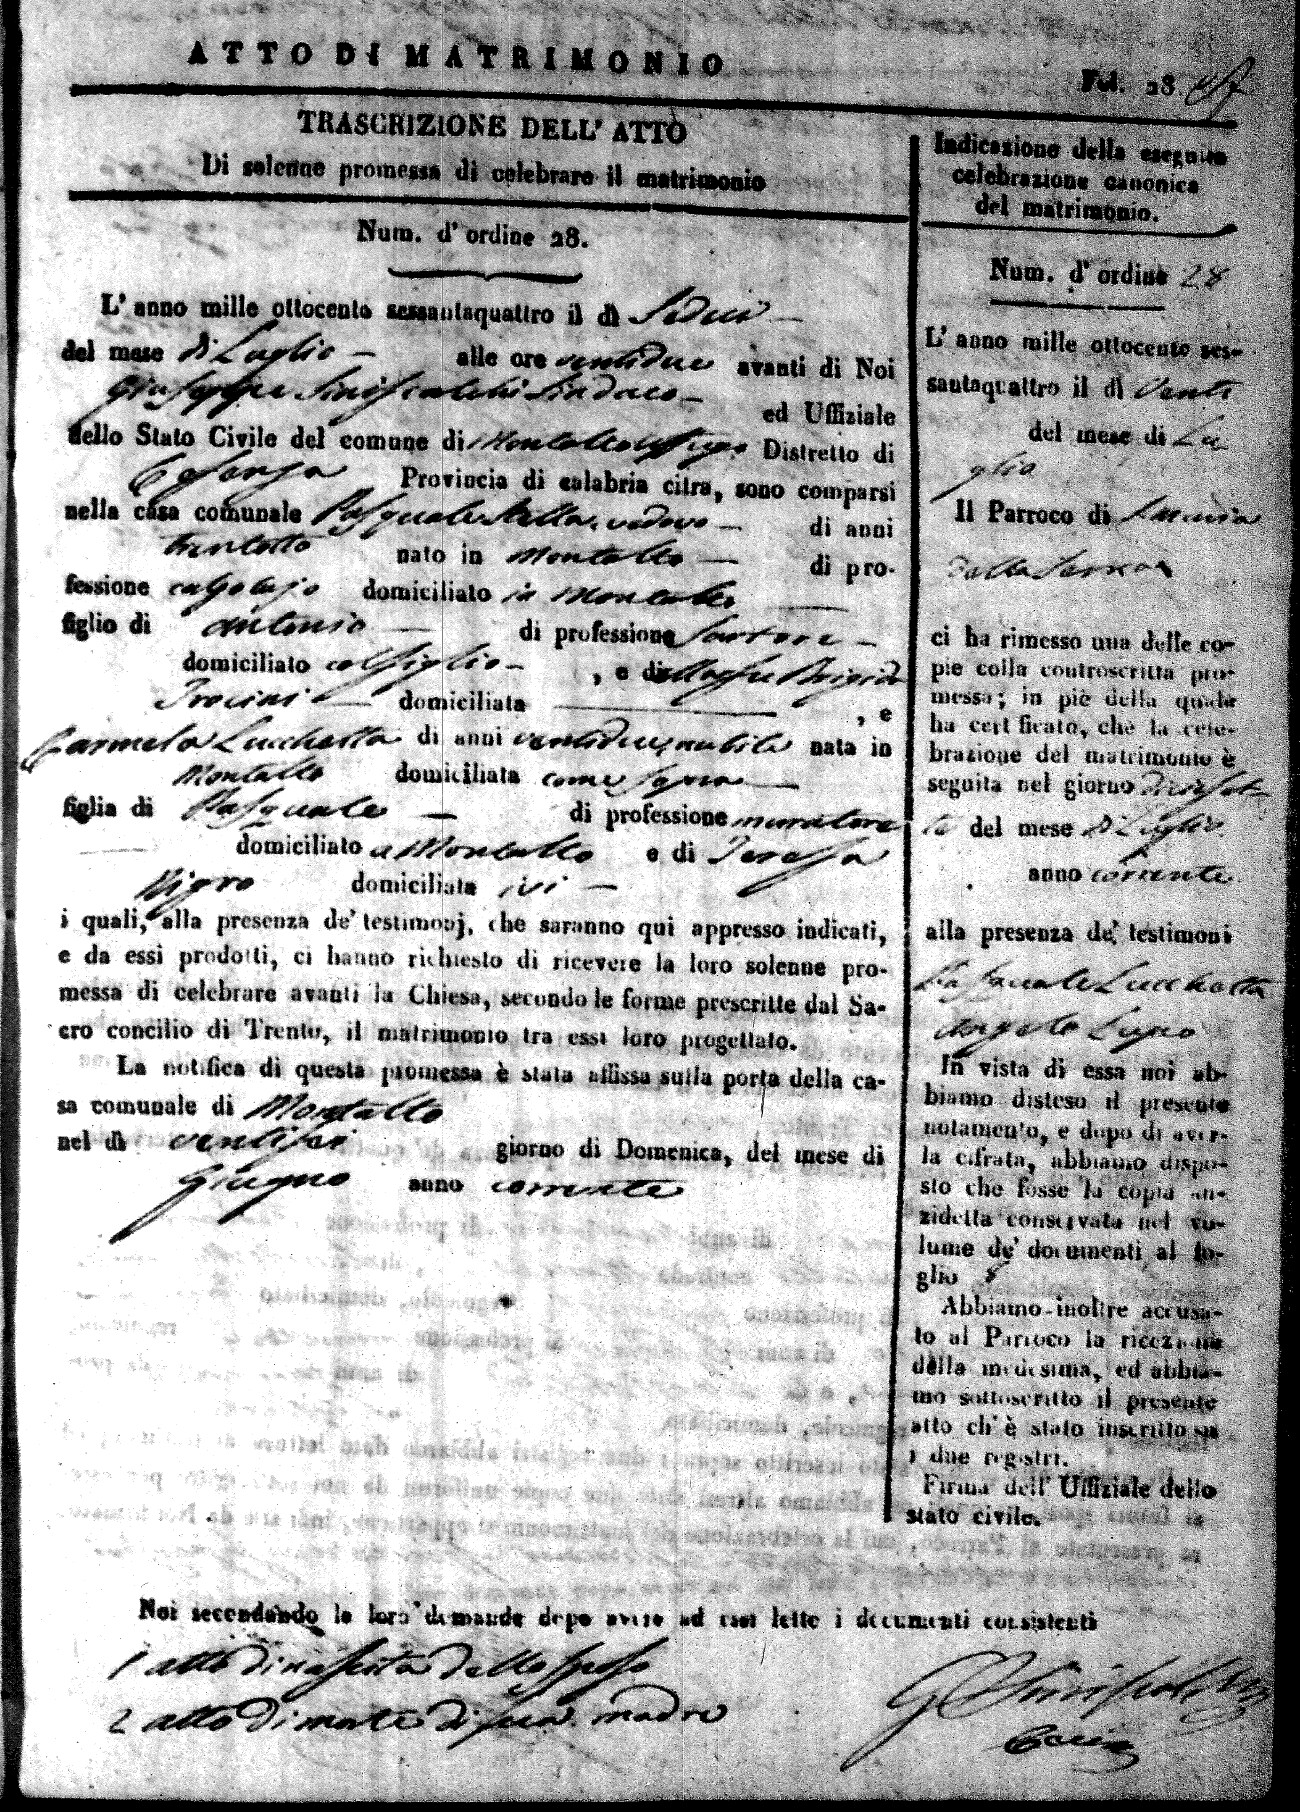 ATTO DI MATRIMONIO
Fol. 28
TRASCRIZIONE DELL' ATTO
Di solenne promessa di celebrare il matrimonio
Num. d' ordine 28.
L' anno mille ottocento sessantaquattro il dì Sedici
del mese di Luglio alle ore ventidue avanti di Noi
Giuseppe Siniscalchi Sindaco ed Uffiziale
dello Stato Civile del comune di Montalto Uffugo Distretto di
Cosenza Provincia di calabria citra, sono comparsi
nella casa comunale Pasquale Stella, vedovo di anni
trentotto nato in Montalto di pro-
fessione calzolajo domiciliato in Montalto
figlio di Antonio di professione Sartore
domiciliato col figlio , e di Brigida
Trocini domiciliata , e
Carmela Lucchetta di anni ventidue, nubile nata in
Montalto domiciliata come sopra
figlia di Pasquale di professione muratore
domiciliato a Montalto e di Teresa
Nigro domiciliata ivi
i quali, alla presenza de' testimonj, che saranno qui appresso indicati,
e da essi prodotti, ci hanno richiesto di ricevere la loro solenne pro-
messa di celebrare avanti la Chiesa, secondo le forme prescritte dal Sa-
cro concilio di Trento, il matrimonio tra essi loro progettato.
La notifica di questa promessa è stata affissa sulla porta della ca-
sa comunale di Montalto
nel dì ventisei giorno di Domenica, del mese di
Giugno anno corrente
Noi secondando le loro domande dopo avere ad essi lette i documenti consistenti
1 atto di nascita dello sposo
2 atto di morte di sua madre
Indicazione della eseguita
celebrazione canonica
del matrimonio.
Num. d' ordine 28
L' anno mille ottocento ses-
santaquattro il dì Venti
del mese di Lu
glio
Il Parroco di
della Serra
ci ha rimesso una delle co-
pie colla controscritta pro-
messa; in piè della quale
ha certificato, che la cele-
brazione del matrimonio è
seguita nel giorno diciaset
te del mese di Luglio
anno corrente
alla presenza de' testimoni
Pasquale Lucchetta
Angelo Lupo
In vista di essa noi ab-
biamo disteso il presente
notamento, e dopo di aver-
la cifrata, abbiamo dispo-
sto che fosse la copia an-
zidetta conservata nel vo-
lume de' documenti al fo-
glio
Abbiamo inoltre accusa-
to al Parroco la ricezione
della medesima, ed abbia-
mo sottoscritto il presente
atto ch' è stato inscritto su
i due registri.
Firma dell' Uffiziale dello
stato civile.
G Siniscalchi